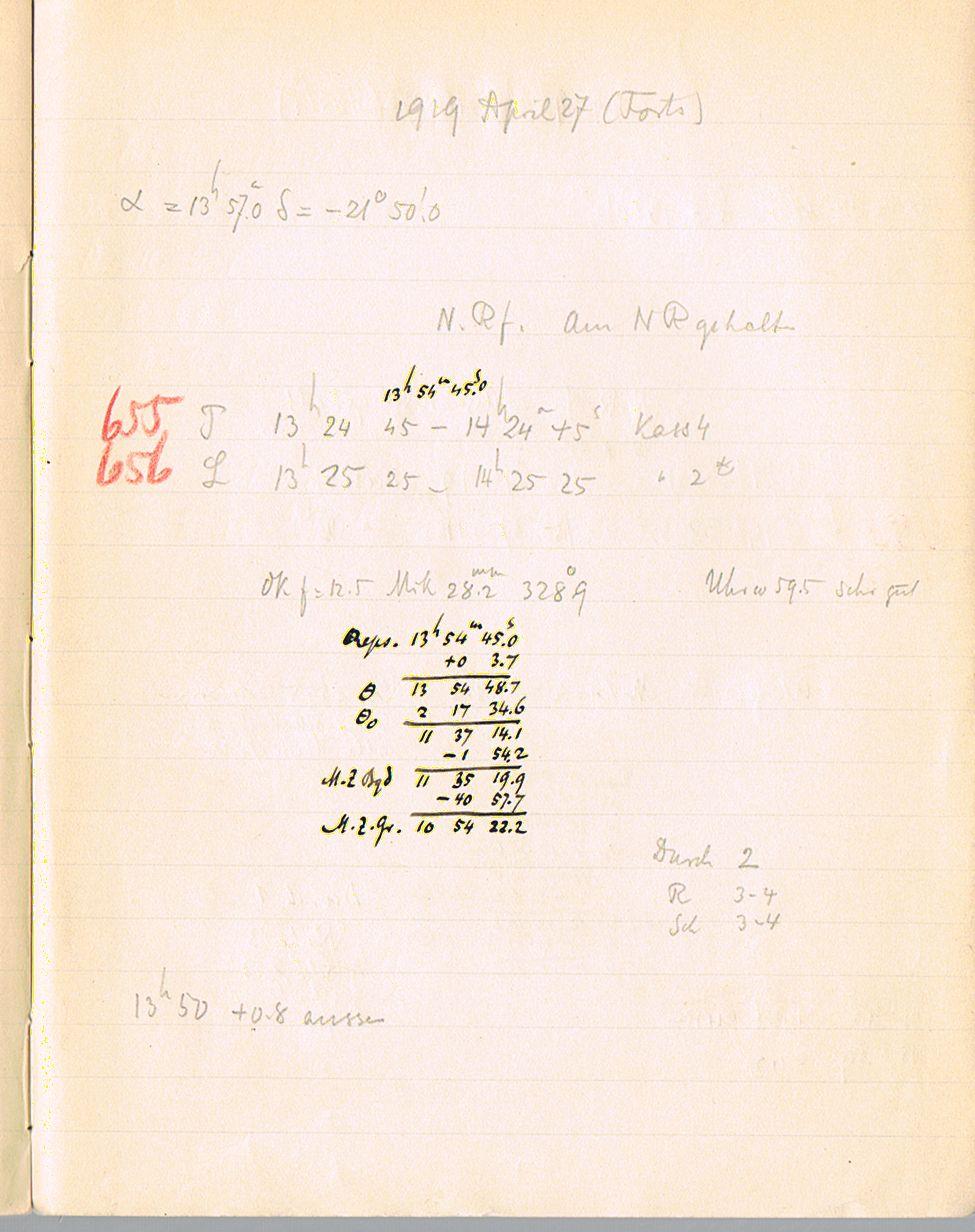 1919 April 27 (Forts)
α = 13ʰ 57.ᵐ0 δ = -21° 50.'0
N.R f. am N R gehalten
13ʰ 54ᵐ 45.ˢ0
655 T 13ʰ 24 45 - 14ʰ 24ᵐ 45ˢ Kass 4
656 L 13ʰ 25 25 - 14ʰ 25 25 " 2
Ok f = 12.5 Mik 28.2ᵐᵐ 328.°9 Uhr 59.5 sehr gut
Reps. 13ʰ 54ᵐ 45.ˢ0
+0 3.7
θ 13 54 48.7
θ₀ 2 17 34.6
11 37 14.1
-1 54.2
M.Z Bgd 11 35 19.9
-40 57.7
M.Z.Gr. 10 54 22.2
Durch 2
R 3-4
Sch 3-4
13ʰ 50 +0.8 aussen